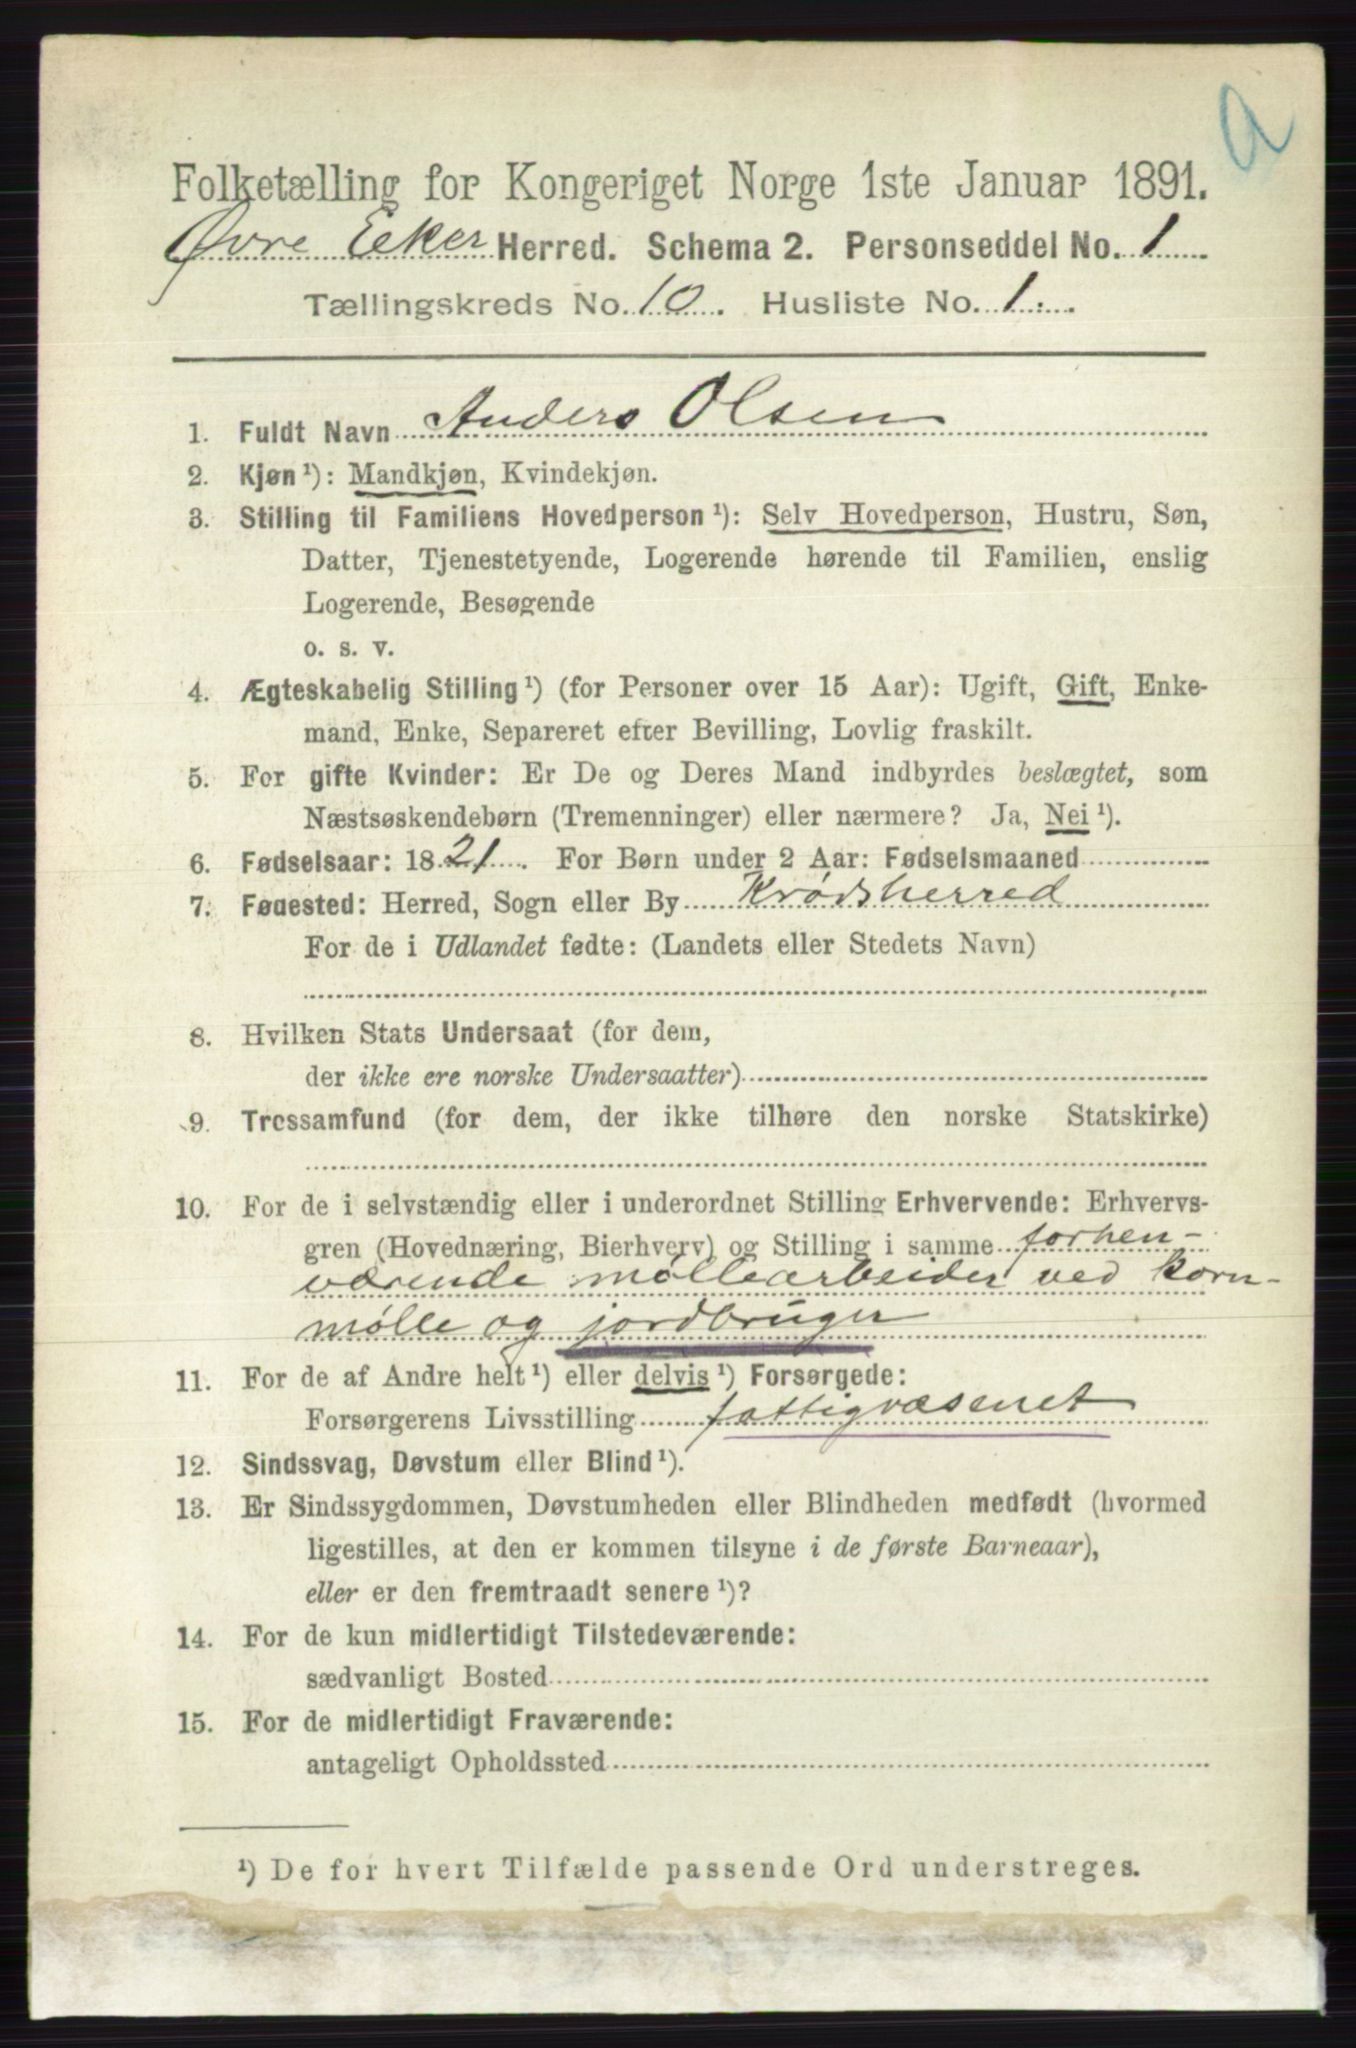 a
Folketælling for Kongeriget Norge 1ste Januar 1891.
Øvre Eeker Herred. Schema 2. Personseddel No. 1
Tællingskreds No. 10. Husliste No. 1.
1. Fuldt Navn Anders Olsen
2. Kjøn ¹): Mandkjøn, Kvindekjøn.
3. Stilling til Familiens Hovedperson ¹): Selv Hovedperson, Hustru, Søn,
Datter, Tjenestetyende, Logerende hørende til Familien, enslig
Logerende, Besøgende
o. s. v.
4. Ægteskabelig Stilling ¹) (for Personer over 15 Aar): Ugift, Gift, Enke-
mand, Enke, Separeret efter Bevilling, Lovlig fraskilt.
5. For gifte Kvinder: Er De og Deres Mand indbyrdes beslægtet, som
Næstsøskendebørn (Tremenninger) eller nærmere? Ja, Nei ¹).
6. Fødselsaar: 1821. For Børn under 2 Aar: Fødselsmaaned
7. Føuested: Herred, Sogn eller By Krødsherred
For de i Udlandet fødte: (Landets eller Stedets Navn)
8. Hvilken Stats Undersaat (for dem,
der ikke ere norske Undersaatter)
9. Trossamfund (for dem, der ikke tilhøre den norske Statskirke)
10. For de i selvstændig eller i underordnet Stilling Erhvervende: Erhvervs-
gren (Hovednæring, Bierhverv) og Stilling i samme forhen-
værende møllearbeider ved korn-
mølle og jordbruger
11. For de af Andre helt ¹) eller delvis ¹) Forsørgede:
Forsørgerens Livsstilling fattigvæsenet
12. Sindssvag, Døvstum eller Blind ¹).
13. Er Sindssygdommen, Døvstumheden eller Blindheden medfødt (hvormed
ligestilles, at den er kommen tilsyne i de første Barneaar),
eller er den fremtraadt senere ¹)?
14. For de kun midlertidigt Tilstedeværende:
sædvanligt Bosted
15. For de midlertidigt Fraværende:
antageligt Opholdssted
¹) De for hvert Tilfælde passende Ord understreges.